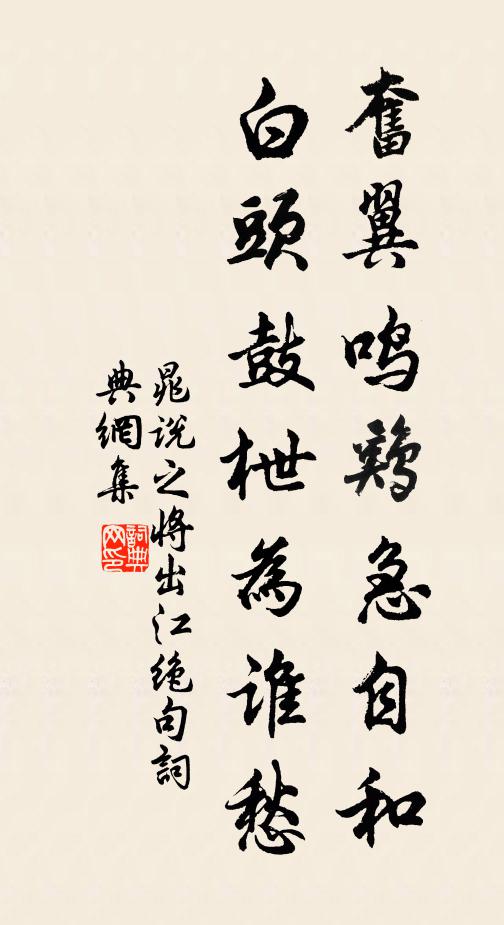 奮翼鳴鷄急自和
白頭鼓枻為誰愁
晁說之將出江絶句詞
典網集
詞典
网印